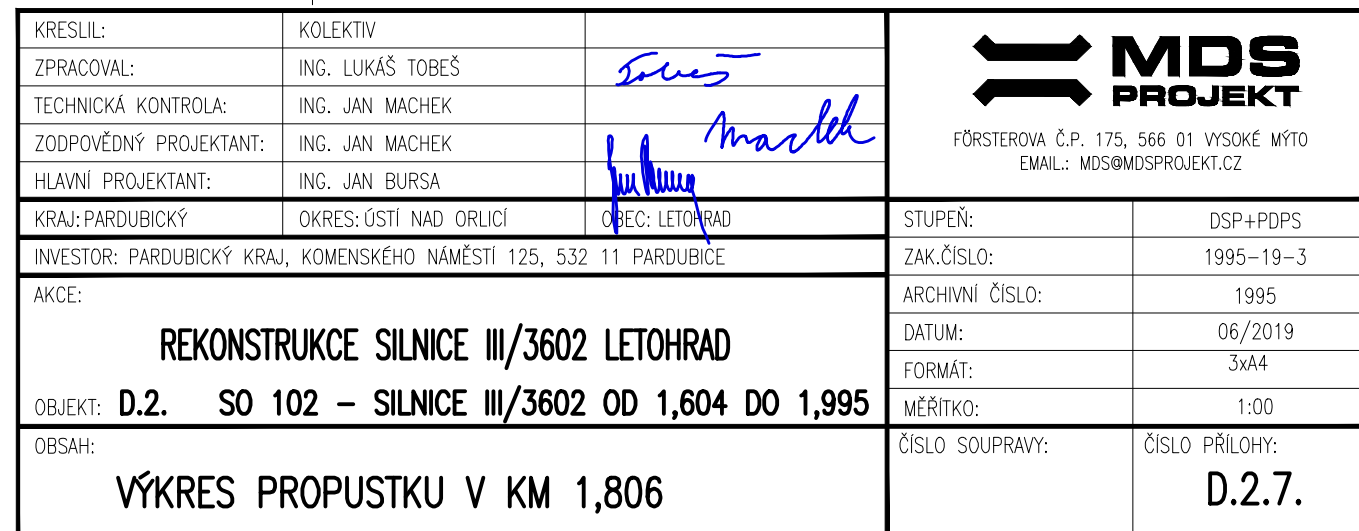 KRESLIL: KOLEKTIV
ZPRACOVAL: ING. LUKÁŠ TOBEŠ Tobeš
TECHNICKÁ KONTROLA: ING. JAN MACHEK
ZODPOVĚDNÝ PROJEKTANT: ING. JAN MACHEK Machek
HLAVNÍ PROJEKTANT: ING. JAN BURSA
KRAJ: PARDUBICKÝ OKRES: ÚSTÍ NAD ORLICÍ OBEC: LETOHRAD
INVESTOR: PARDUBICKÝ KRAJ, KOMENSKÉHO NÁMĚSTÍ 125, 532 11 PARDUBICE
AKCE:
REKONSTRUKCE SILNICE III/3602 LETOHRAD
OBJEKT: D.2. SO 102 – SILNICE III/3602 OD 1,604 DO 1,995
OBSAH:
VÝKRES PROPUSTKU V KM 1,806
MDS
PROJEKT
FÖRSTEROVA Č.P. 175, 566 01 VYSOKÉ MÝTO
EMAIL.: MDS@MDSPROJEKT.CZ
STUPEŇ: DSP+PDPS
ZAK.ČÍSLO: 1995-19-3
ARCHIVNÍ ČÍSLO: 1995
DATUM: 06/2019
FORMÁT: 3xA4
MĚŘÍTKO: 1:00
ČÍSLO SOUPRAVY: ČÍSLO PŘÍLOHY:
D.2.7.